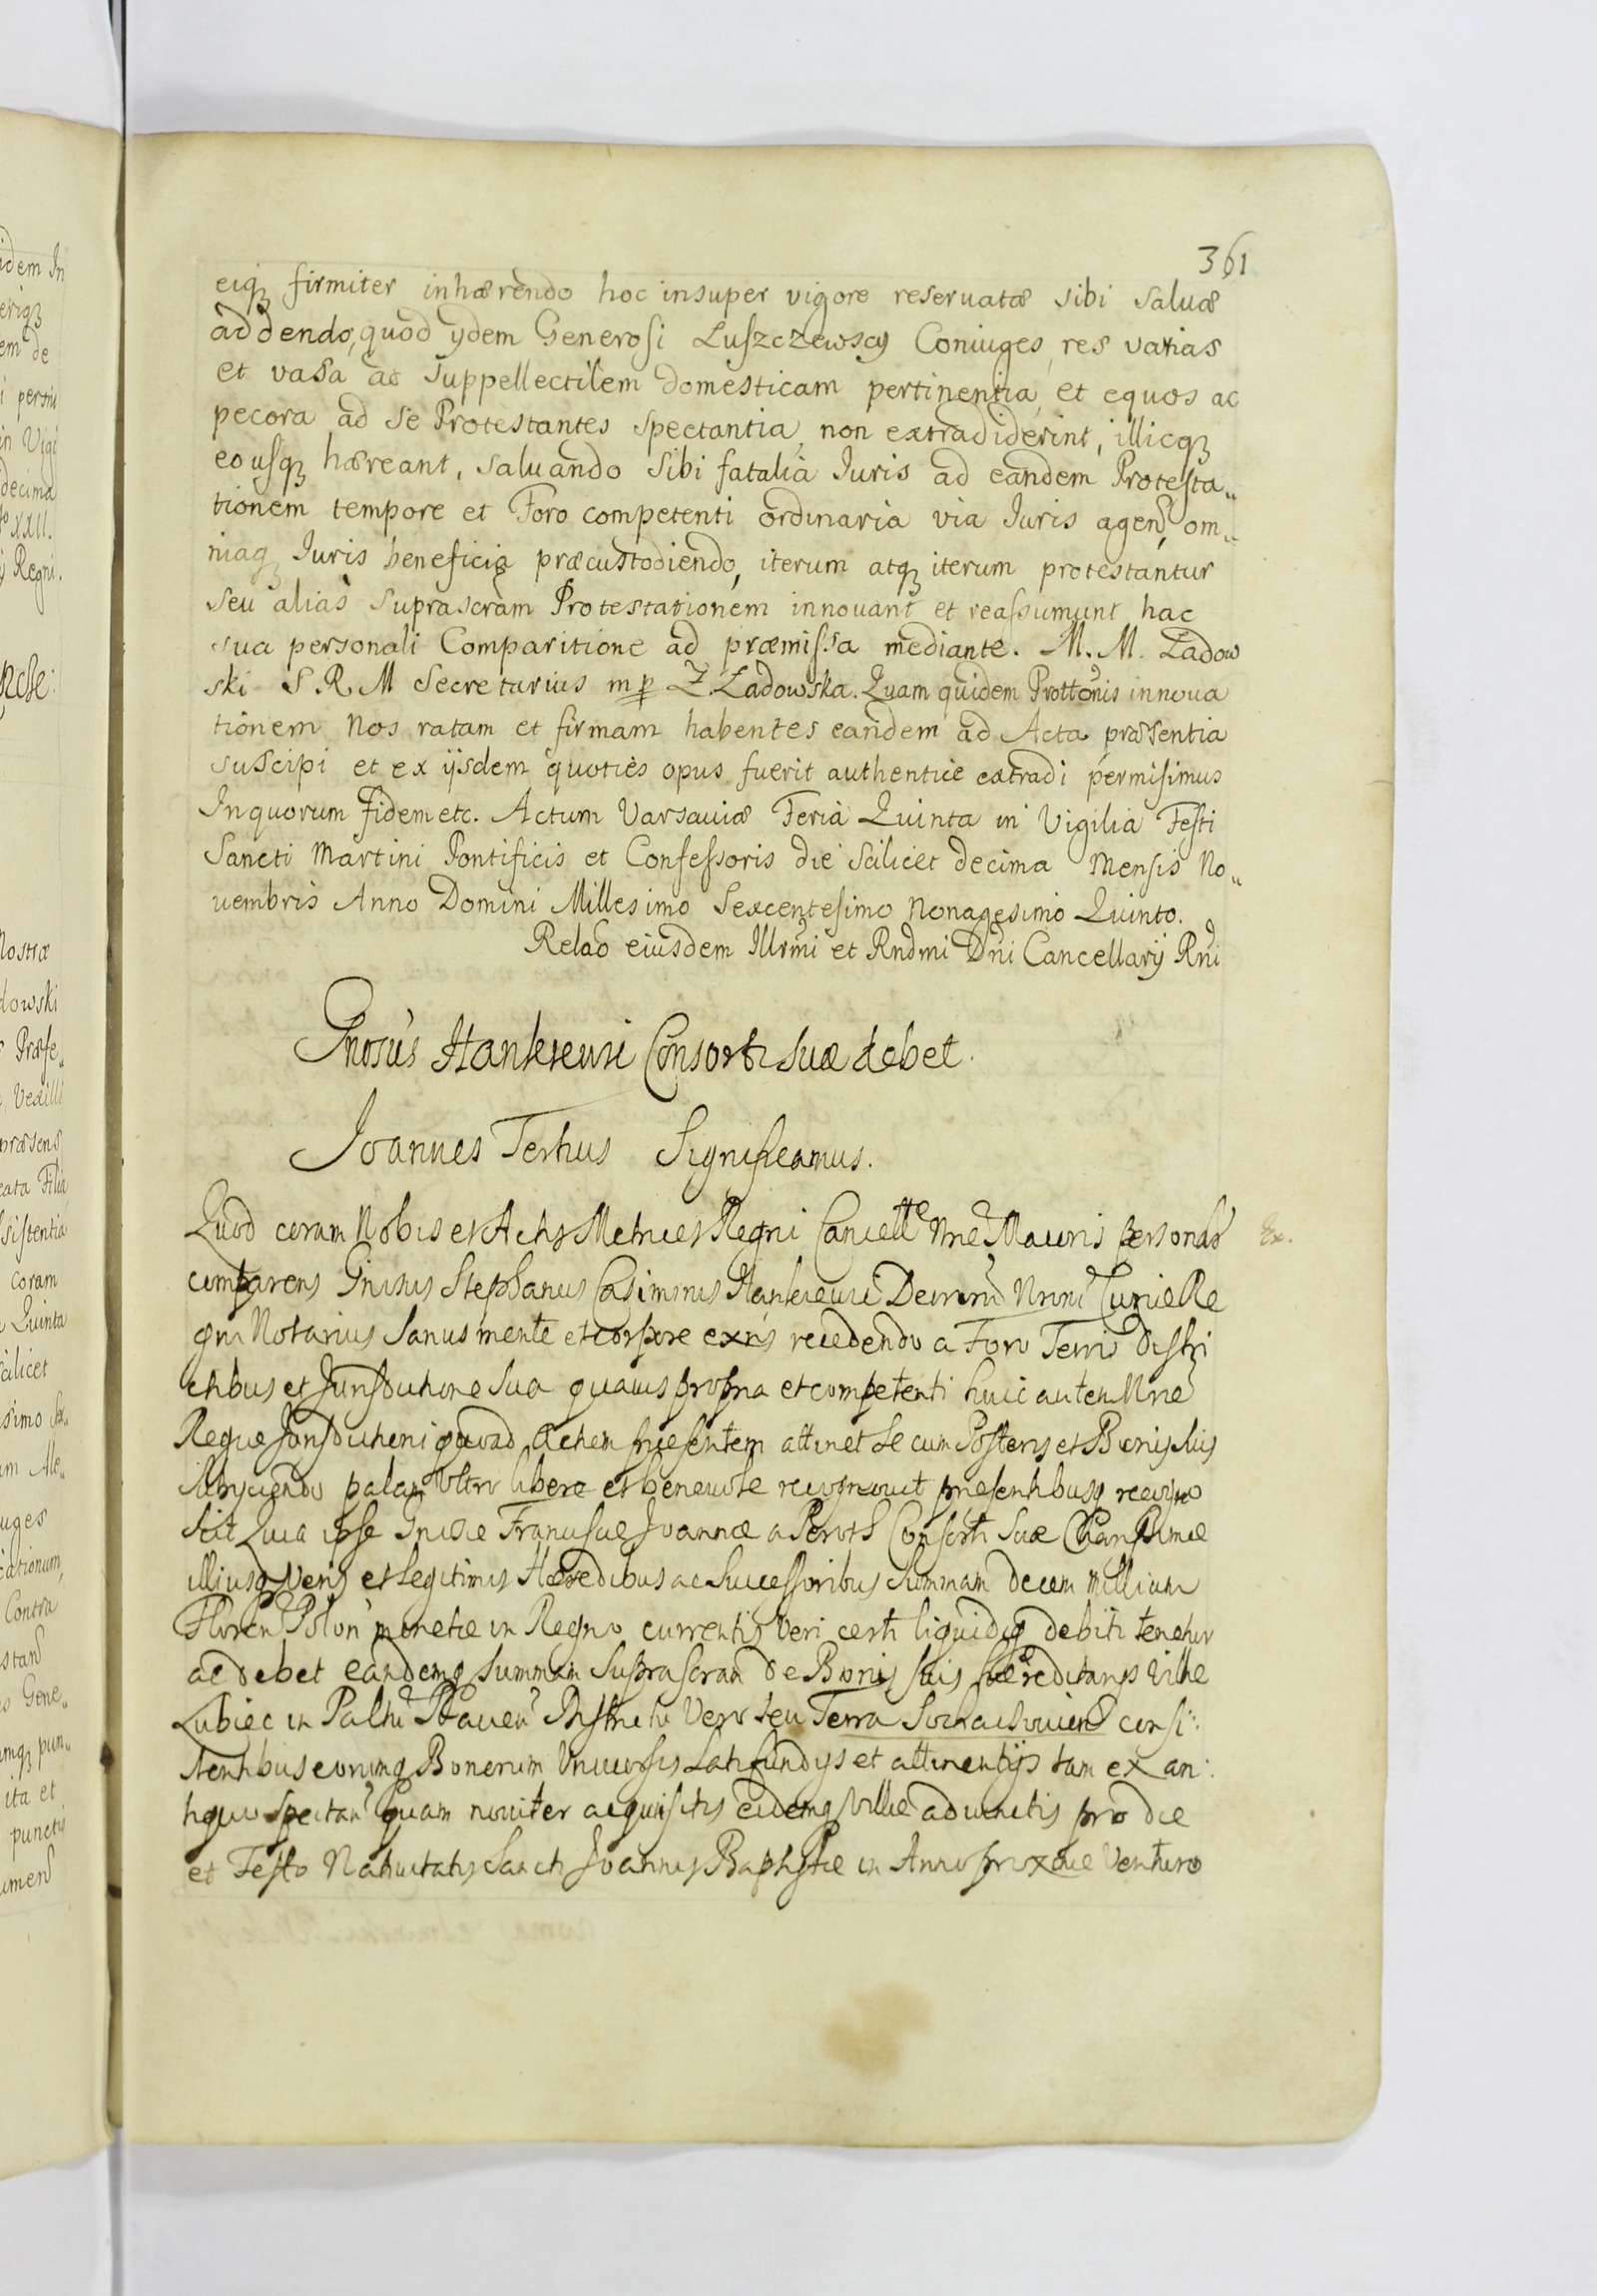 361
eiqȝ firmiter inhærendo hoc insuper vigore reservatæ sibi salvæ
addendo, quod ydem Generosi Luszczewscy Coniuges, res varias
et vasa ac suppellectilem domesticam pertinentia, et equos ac
pecora ad se Protestantes spectantia, non extradiderint, illicqȝ
eousqȝ hæreant, saluando sibi fatalia Iuris ad eandem Protesta„
tionem tempore et Foro competenti ordinaria via Iuris agend, om„
niaqȝ Iuris beneficia præcustodiendo, iterum atqȝ iterum protestantur
seu alias suprascram Protestationem innouant et reassumunt hac
sua personali Comparitione ad præmissa mediante. M. M. Ladow
ski S. R. M Secretarius mp Z. Ladowska. Quam quidem Prottonis innoua
tionem Nos ratam et firmam habentes eandem ad Acta præsentia
suscipi et ex ijsdem quoties opus fuerit authentice extradi permisimus
In quorum fidem etc. Actum Varsauiæ Feria Quinta in Vigilia Festi
Sancti Martini Pontificis et Confessoris die scilicet decima Mensis No„
uembris Anno Domini Millesimo Sexcentesimo Nonagesimo Quinto.
Relao eiusdem Illrmi et Rndmi Dni Cancellarij Rni
Gnosus Hankiewi Consorti suæ debet.
Joannes Tertius Significamus.
Quod coram Nobis et Actis Metrices Regni Cancell Nræ Maioris personalr
comparens Gnosus Stephanus Casimirus Hankiewi Nrorum Curiæ Re
gni Notarius sanus mente et corpore exns recedendo a Foro Terris Distri
ctibus et Jurisdictione sua quauis propria et competenti huic autem Nræ
Regiæ Jurisdictioni quoad Actum præsentem attinet se cum Posteris et Bonis suis
subijciendo palam vltro libere et beneuole recognouit præsentibusqȝ recogno
scit Quia ipse Gnosæ Franciscæ Joannæ a Perots Consorti suæ Charissimæ
illiusqȝ Veris et Legitimis Hæredibus ac Successoribus Summam decem millium
Floren Polon monetæ in Regno currentis Veri certi liquidiqȝ debiti tenetur
ac debet eandemqȝ summam suprascram de Bonis suis hæreditarijs Villæ
Lubiec in Palttu Rauen Districtu Vero seu Terra Sochaczouien consi„
stentibus eorumqȝ Bonorum Vniuersis Latifundijs et attinentijs tam ex an„
tiquo spectan quam nouiter acquisitis eidemqȝ Villæ adiunctis pro die
et Festo Natiuitatis Sancti Joannis Baptistæ in Anno proxime Venturo